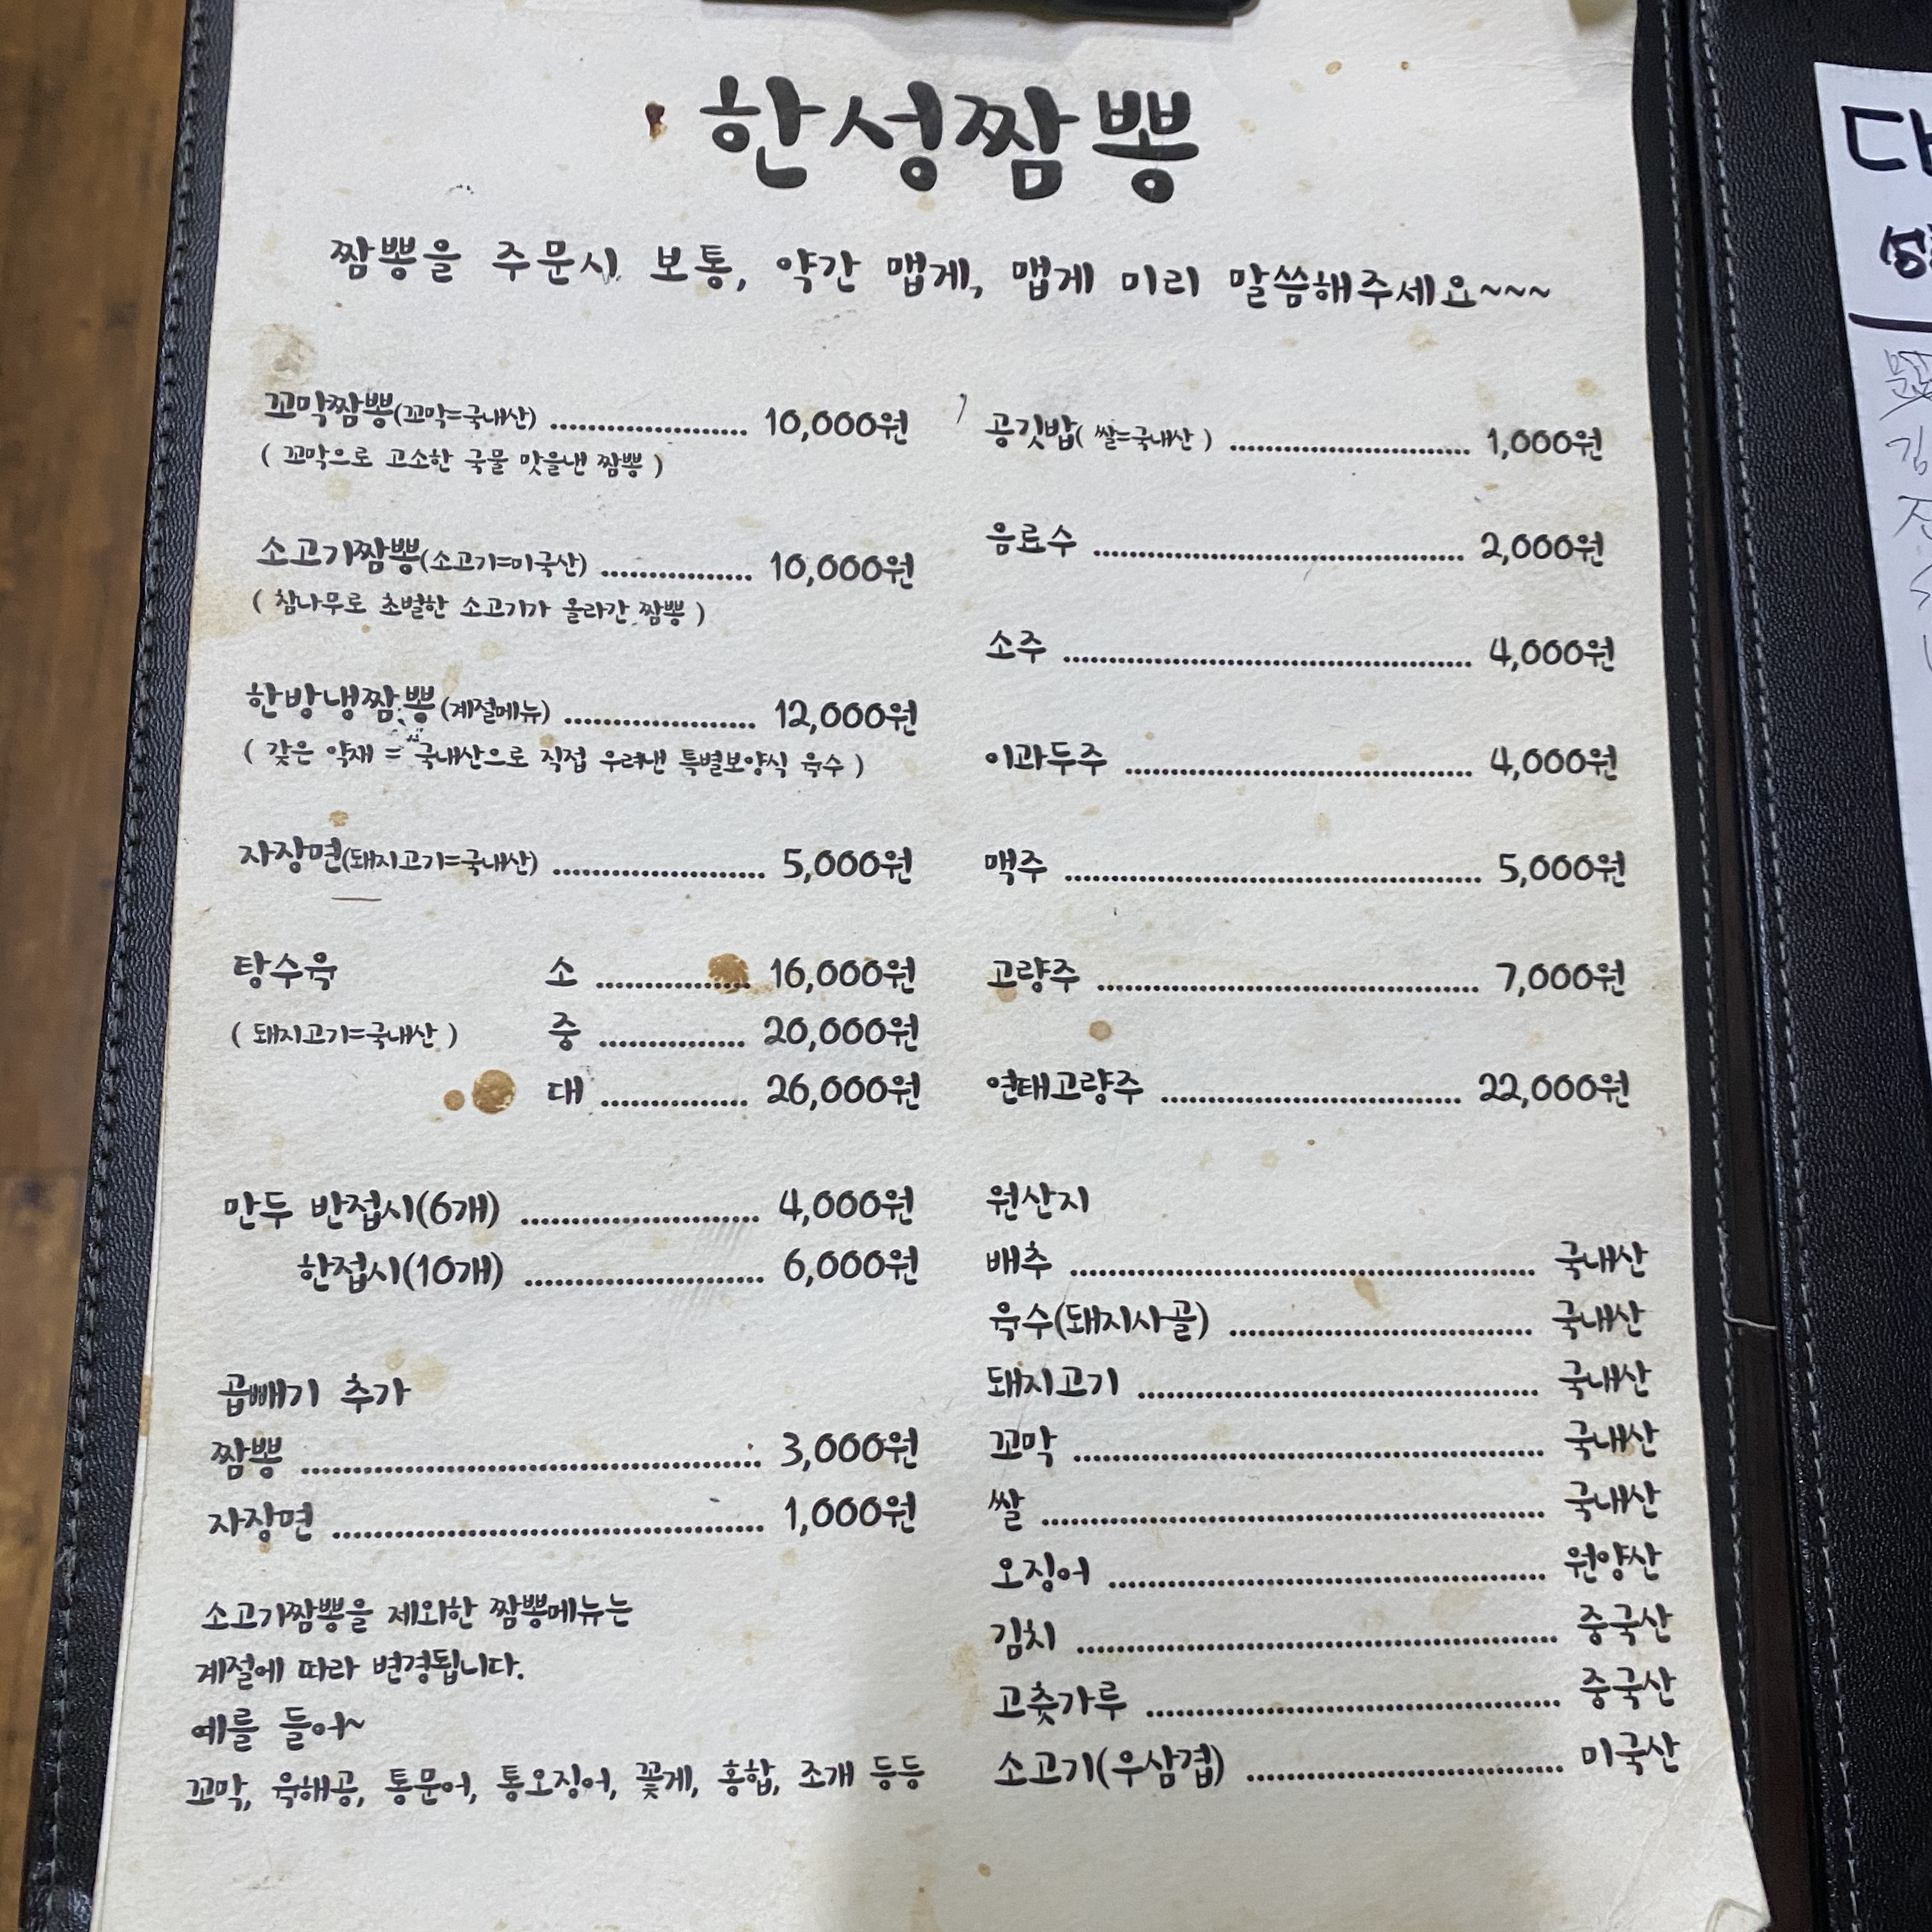 한성짬뽕
짬뽕을 주문시 보통, 약간 맵게, 맵게 미리 말씀해주세요~~~
꼬막짬뽕(꼬막=국내산) .................... 10,000원
( 꼬막으로 고소한 국물 맛을낸 짬뽕 )
소고기짬뽕(소고기=미국산) ................ 10,000원
( 참나무로 초벌한 소고기가 올라간 짬뽕 )
한방냉짬뽕(계절메뉴) .................... 12,000원
( 갖은 약재 = 국내산으로 직접 우려낸 특별보양식 육수 )
자장면(돼지고기=국내산) .................... 5,000원
탕수육 소 ................ 16,000원
( 돼지고기=국내산 ) 중 ................ 20,000원
대 ................ 26,000원
만두 반접시(6개) .................... 4,000원
한접시(10개) .................... 6,000원
곱빼기 추가
짬뽕 .................... 3,000원
자장면 .................... 1,000원
소고기짬뽕을 제외한 짬뽕메뉴는
계절에 따라 변경됩니다.
예를 들어~
꼬막, 육해공, 통문어, 통오징어, 꽃게, 홍합, 조개 등등
공깃밥( 쌀=국내산 ) .................... 1,000원
음료수 .................... 2,000원
소주 .................... 4,000원
이과두주 .................... 4,000원
맥주 .................... 5,000원
고량주 .................... 7,000원
연태고량주 .................... 22,000원
원산지
배추 .................... 국내산
육수(돼지사골) .................... 국내산
돼지고기 .................... 국내산
꼬막 .................... 국내산
쌀 .................... 국내산
오징어 .................... 원양산
김치 .................... 중국산
고춧가루 .................... 중국산
소고기(우삼겹) .................... 미국산